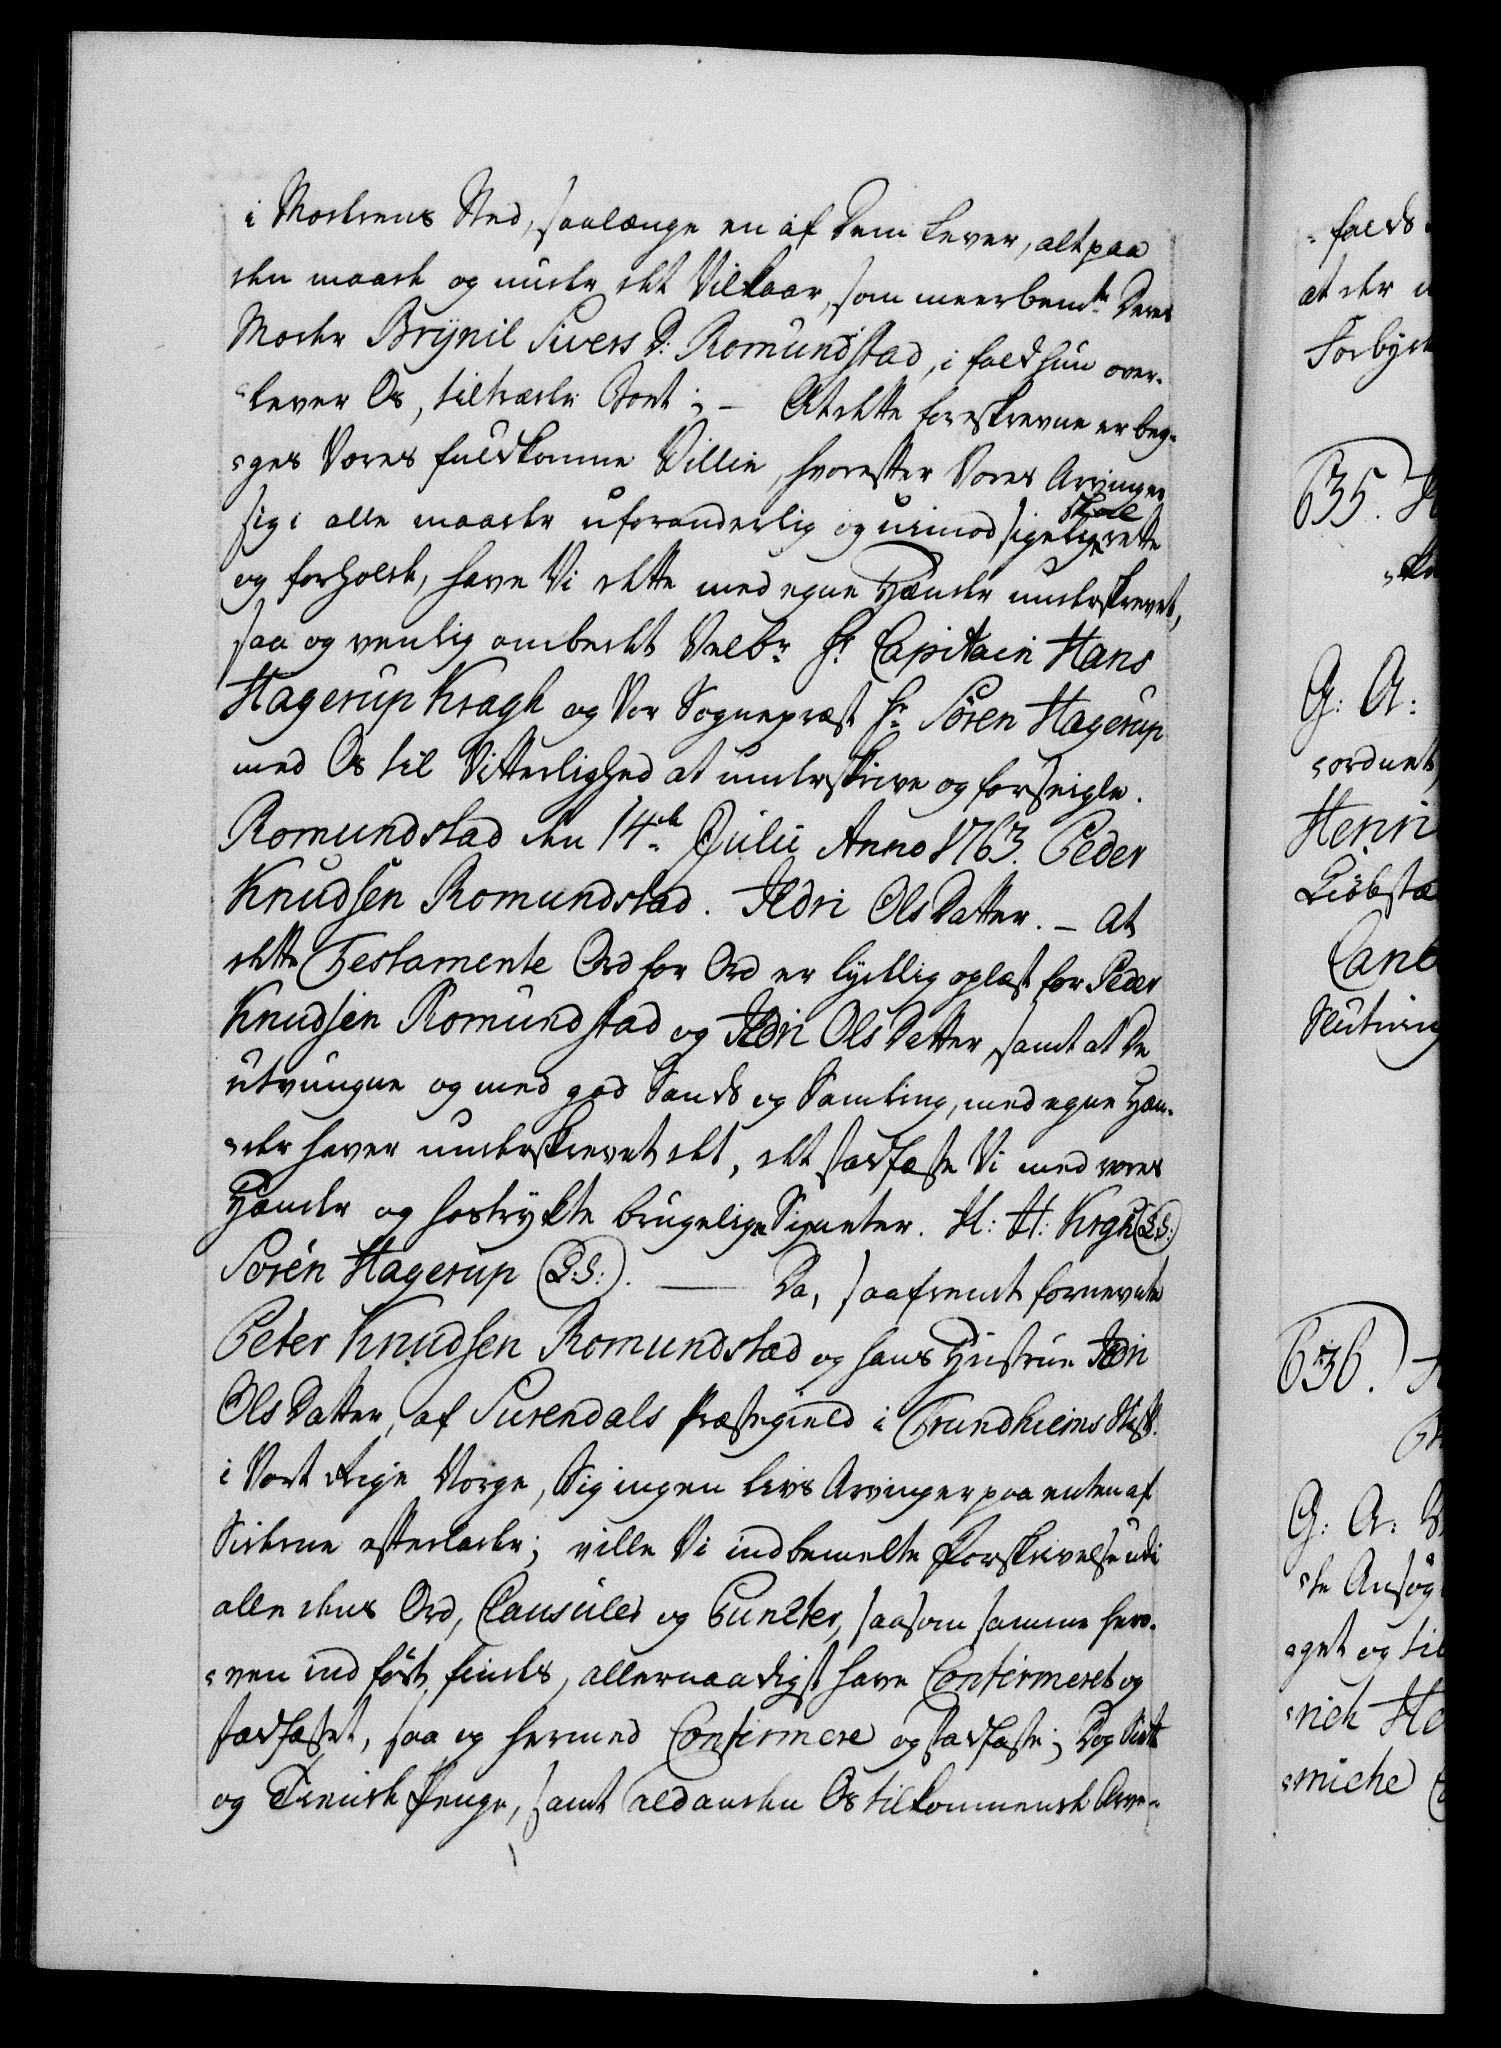 i Moderens Sted, saalænge en af dem lever, alt paa
den maade og under det Vilkaar, som meerbemte Deres
Moder Brynil Sivers D: Romundstad, i fald hun over-
lever Os, tiltræder Boet; – At dette foreskrevne er beg-
ges Vores fuldkomne Villie, hvorefter Vores Arvinger
sig i alle maader uforanderlig og uimodsigelig skal rette
og forholde, have Vi dette med egne Hænder underskrevet,
saa og venlig ombedet Velbr Hr Capitain Hans
Hagerup Kragh og Vor Sognepræst Hr Sören Hagerup
med Os til Vitterlighed at underskrive og forseigle.
Romundstad den 14de Julii Anno 1763. Peder
Knudsen Romundstad. Ildri Ols Datter. – At
dette Testamente Ord for Ord er lydelig oplæst for Peder
Knudsen Romundstad og Ildri Ols Datter, samt at De
utvungne og med god Sands og Samling, med egne Hæn-
der haver underskrevet det, det stadfæste Vi med vores
Hænder og hostrykte brugelige Signeter. H: H: Krgh (L.S:)
Sören Hagerup (L:S:). — Da, saafremt fornevnte
Peter Knudsen Romundstad og hans Hustrue Ildri
Ols Datter, af Surendals Præstegield i Trundhiems Stift
i Vort Rige Norge, Sig ingen Livs Arvinger paa enten af
Siderne efterlader; ville Vi indbemelte Forskrivelse udi
alle dens Ord, Clausuler og Puncter, saasom samme her o-
ven indført findes, allernaadigst have Confirmeret og
stadfæstet, saa og hermed Confirmere og stadfæste; Dog Siette
og Tiende Penge, samt ald anden Os tilkommende Arve-
635.
G: A:
ordnet,
Henri
636.
G: A:
get og til
rich He
miche